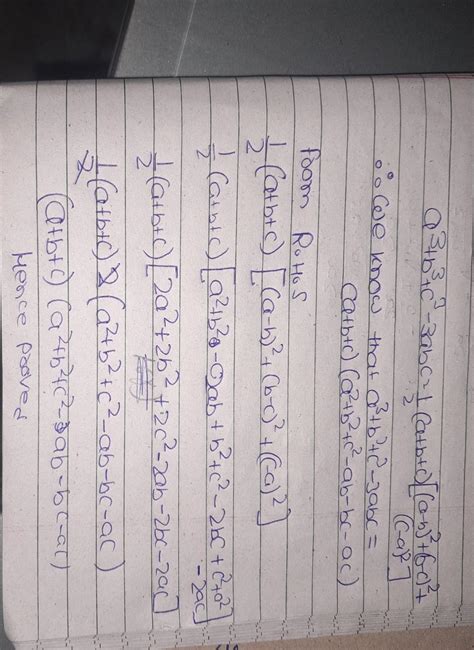 a³+b³+c³-3abc = 1/2 (a+b+c)[(a-b)²+(b-c)²+
(c-a)²]
∴ we know that a³+b³+c³-3abc =
(a+b+c)(a²+b²+c²-ab-bc-ac)
From R.H.S
1/2 (a+b+c) [(a-b)²+(b-c)²+(c-a)²]
1/2 (a+b+c) [a²+b²-2ab+b²+c²-2bc+c²+a²
-2ac]
1/2 (a+b+c) [2a²+2b²+2c²-2ab-2bc-2ac]
1/2 (a+b+c) 2 (a²+b²+c²-ab-bc-ac)
(a+b+c) (a²+b²+c²-ab-bc-ac)
Hence proved